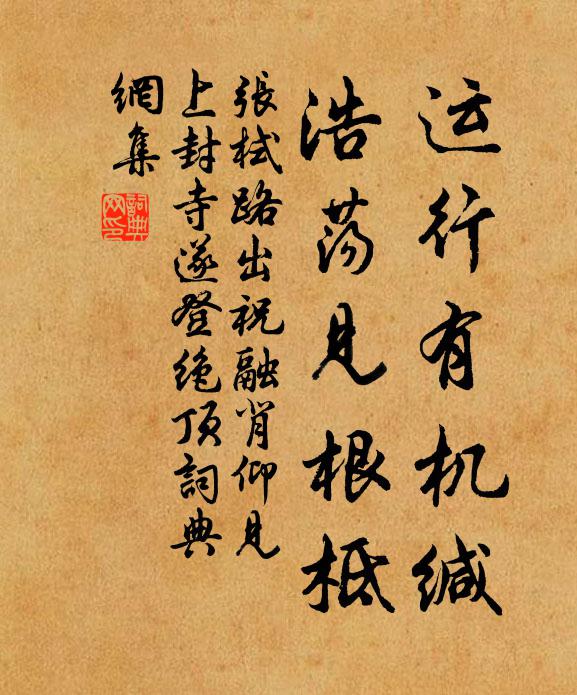 运行有机缄
浩荡见根柢
張栻路出祝融背仰见
上封寺遂登绝顶詞典
網集
詞典
网印